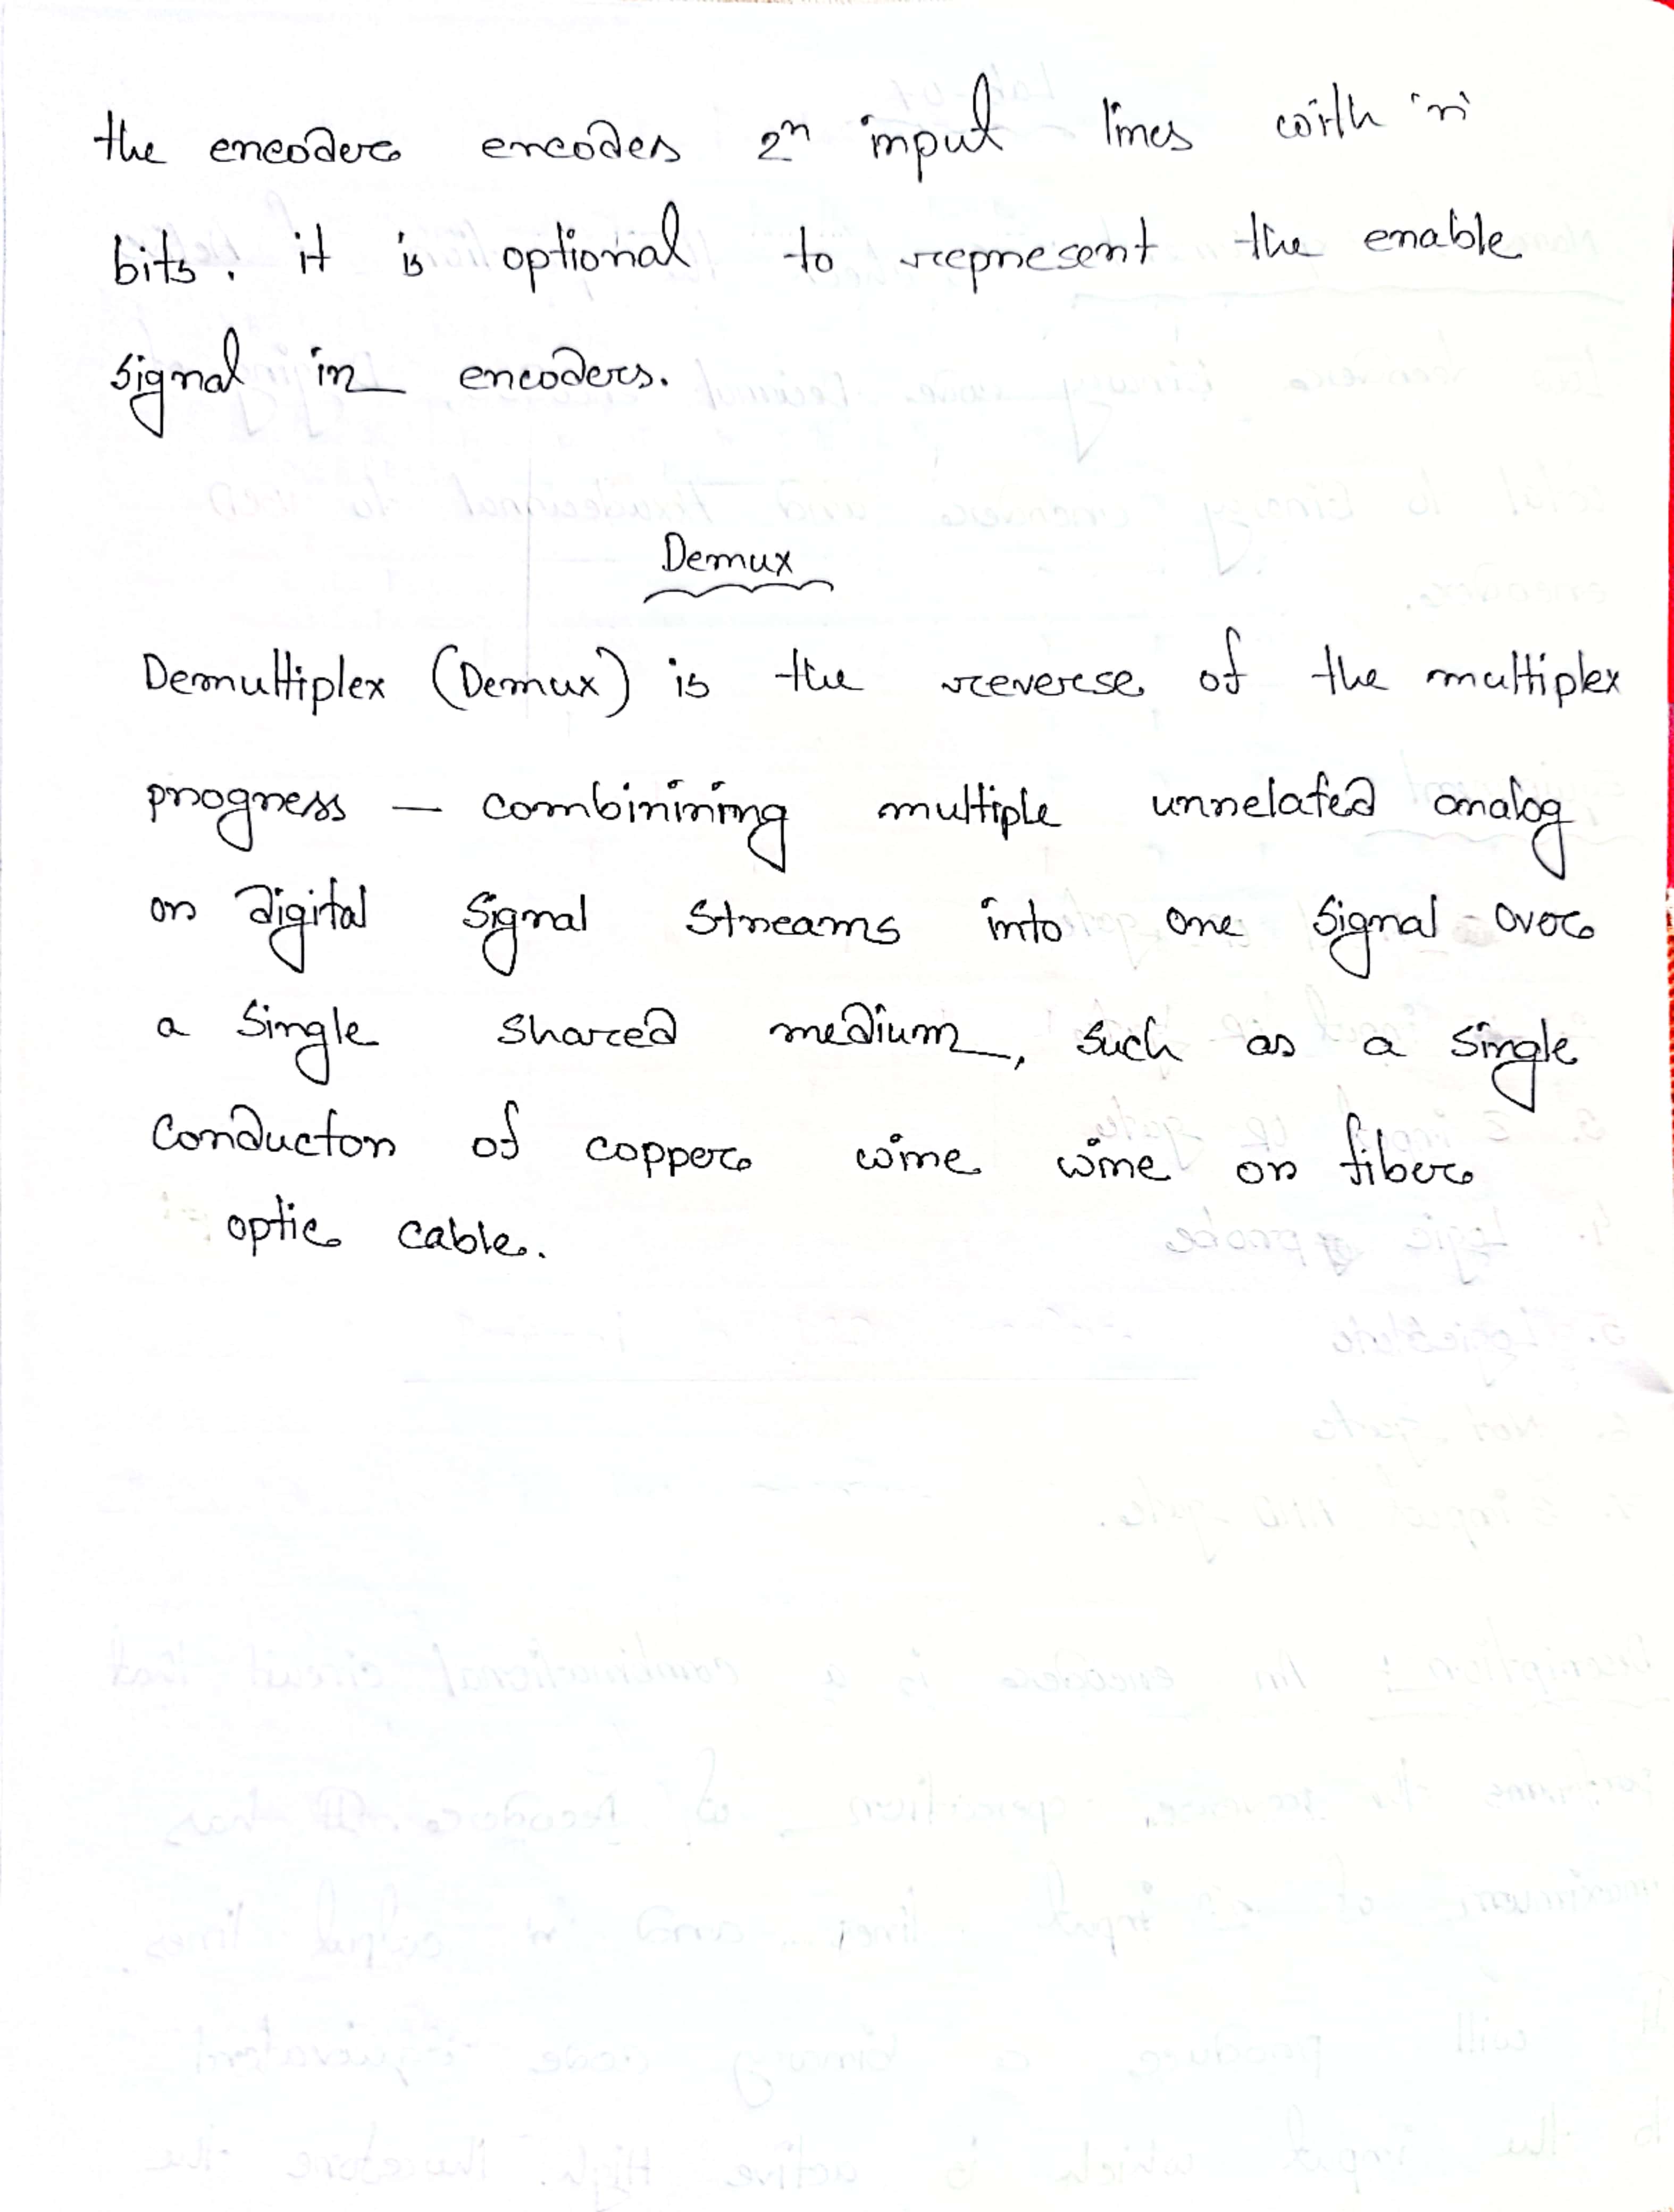 the encoder encodes 2ⁿ input lines with 'n'
bits. it is optional to represent the enable
signal in encoders.
Demux
Demultiplex (Demux) is the reverse of the multiplex
progress — combinining multiple unrelated analog
or digital signal streams into one signal over
a single shared medium, such as a single
conductor of copper wire wire or fiber
optic cable.